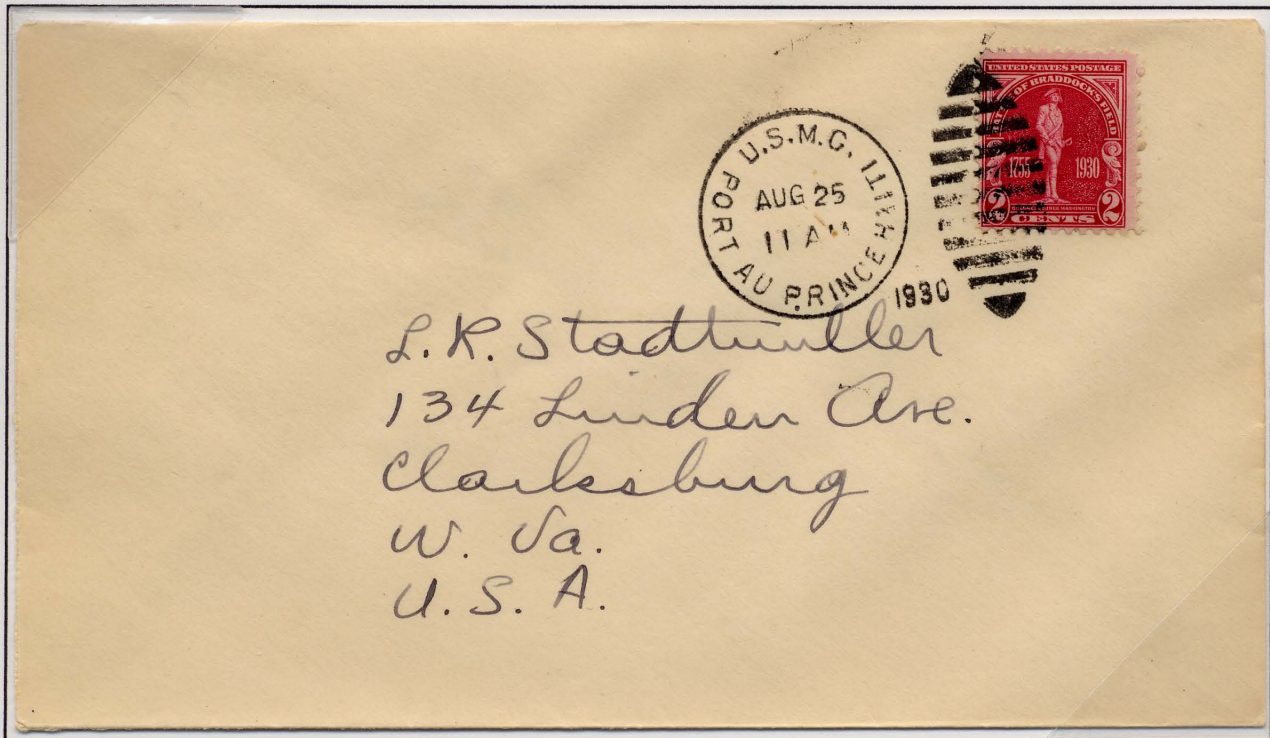 U.S.M.C.
PORT AU PRINCE HAITI
AUG 25
11 AM
1930
UNITED STATES POSTAGE
BATTLE OF BRADDOCK'S FIELD
1755 1930
2 CENTS 2
L. R. Stadtmuller
134 Linden Ave.
Clarksburg
W. Va.
U. S. A.